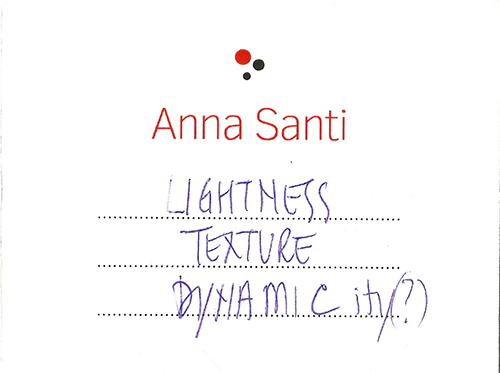 Anna Santi
LIGHTNESS
TEXTURE
DYNAMICity(?)